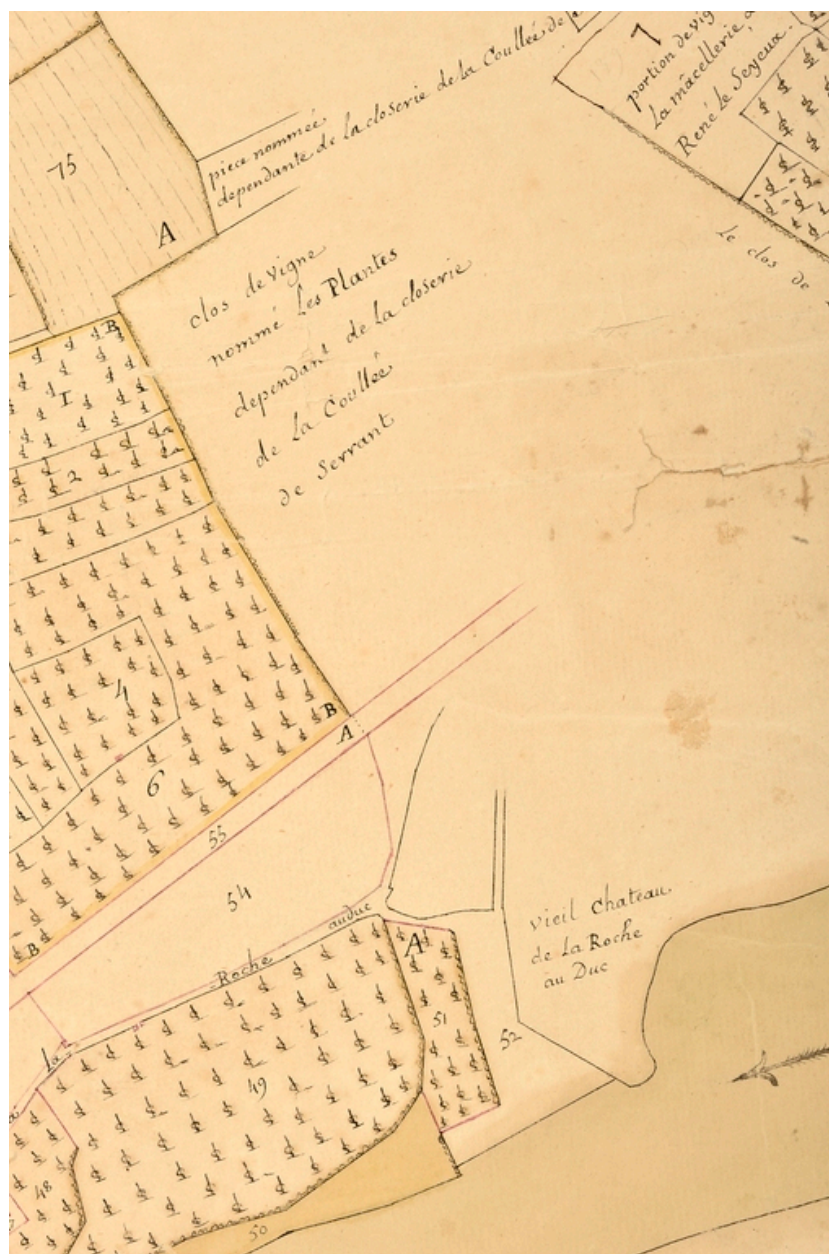 75
A
piece nommeé
dependante de la closerie de la Coullée de
7
portion de vig
La mâcellerie
René Le Seyeux.
Le clos de
clos de vigne
nommé Les Plantes
dependant de la closerie
de La Coullée
de Serrant
B
1
2
4
6
B
A
B
55
54
La Roche au duc
A
51
52
49
48
50
vieil Chateau
de La Roche
au Duc